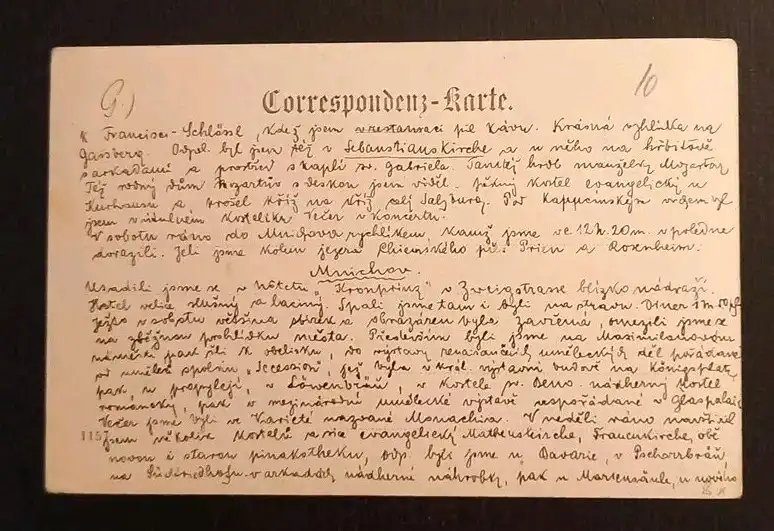 G.)
10
Correspondenz-Karte.
k Francisci-Schlössl, kdež jsem v restauraci pil kávu. Krásná vyhlídka na
Gaisberg. Odpol. byl jsem též v Sebastianskirche a u něho na hřbitově
s arkadami a prostřed s kaplí sv. Gabriela. Tamtéž hrob manželky Mozartovy
Též rodný dům Mozartův s deskou jsem viděl. pěkný kostel evangelický u
Kurhausu a prošel kříž na kříž celý Salzburg. Pod Kapucinským vrchem byl
jsem v kostelíku. Večer v koncertu.
V sobotu ráno do Mnichova rychlíkem, kamž jsme ve 12 h. 20 m. v poledne
dorazili. Jeli jsme kolem jezera Chiemského přes Prien a Rosenheim.
Mnichov.
Usadili jsme se v hôtelu "Kronprinz" v Zweigstrasse blízko nádraží.
Hostel velice slušný a laciný. Spali jsme tam i byli na stravu. Diner 1 M
Ježto v sobotu většina sbírek a obrazáren byla zavřená, omezili jsme se
na zběžnou prohlídku města. Především byli jsme na Maximilianovu
náměstí pak šli k obelisku, do výstavy renaissančních uměleckých děl pořádané
od umělec. spolku "Secession", jež byla v král. výstavní budově na Königsplatz,
pak u propylejí, v Löwenbräu, v kostele sv. Beno. nádherný kostel
románský, pak v mezinárodní umělecké výstavě uspořádané v Glaspalaic
Večer jsme byli ve Varieté nazvané Monachia. V neděli ráno navštívil
1157
jsem několik kostelů a sice evangelický Matheuskirche, Frauenkirche, obě
novou i starou pinakotheku, odp. byli jsme u Bavarie, v Pschorrbräu
na Südfriedhofu v arkádách nádherné náhrobky, pak u Mariensäule, u nového